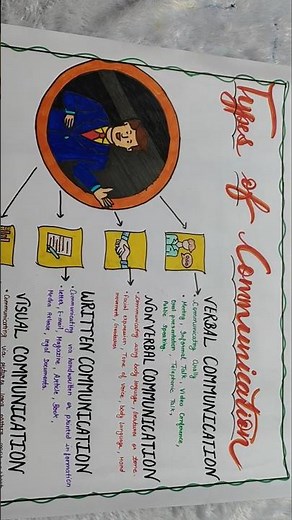 Types of Communication
VERBAL COMMUNICATION
• Communicating Orally
• Meeting, Informal Talk, Video Conference,
Oral presentation, Telephone Talk,
Public Speaking.
NONVERBAL COMMUNICATION
• Communicating using body language, gestures or
• Facial expression, Tone of Voice, body language, Hand
movement,
WRITTEN COMMUNICATION
• Communicating via handwritten or printed information
• letter, E-mail, Magazine, Article, Book,
Media Release, legal Documents.
VISUAL COMMUNICATION
• Communicating via